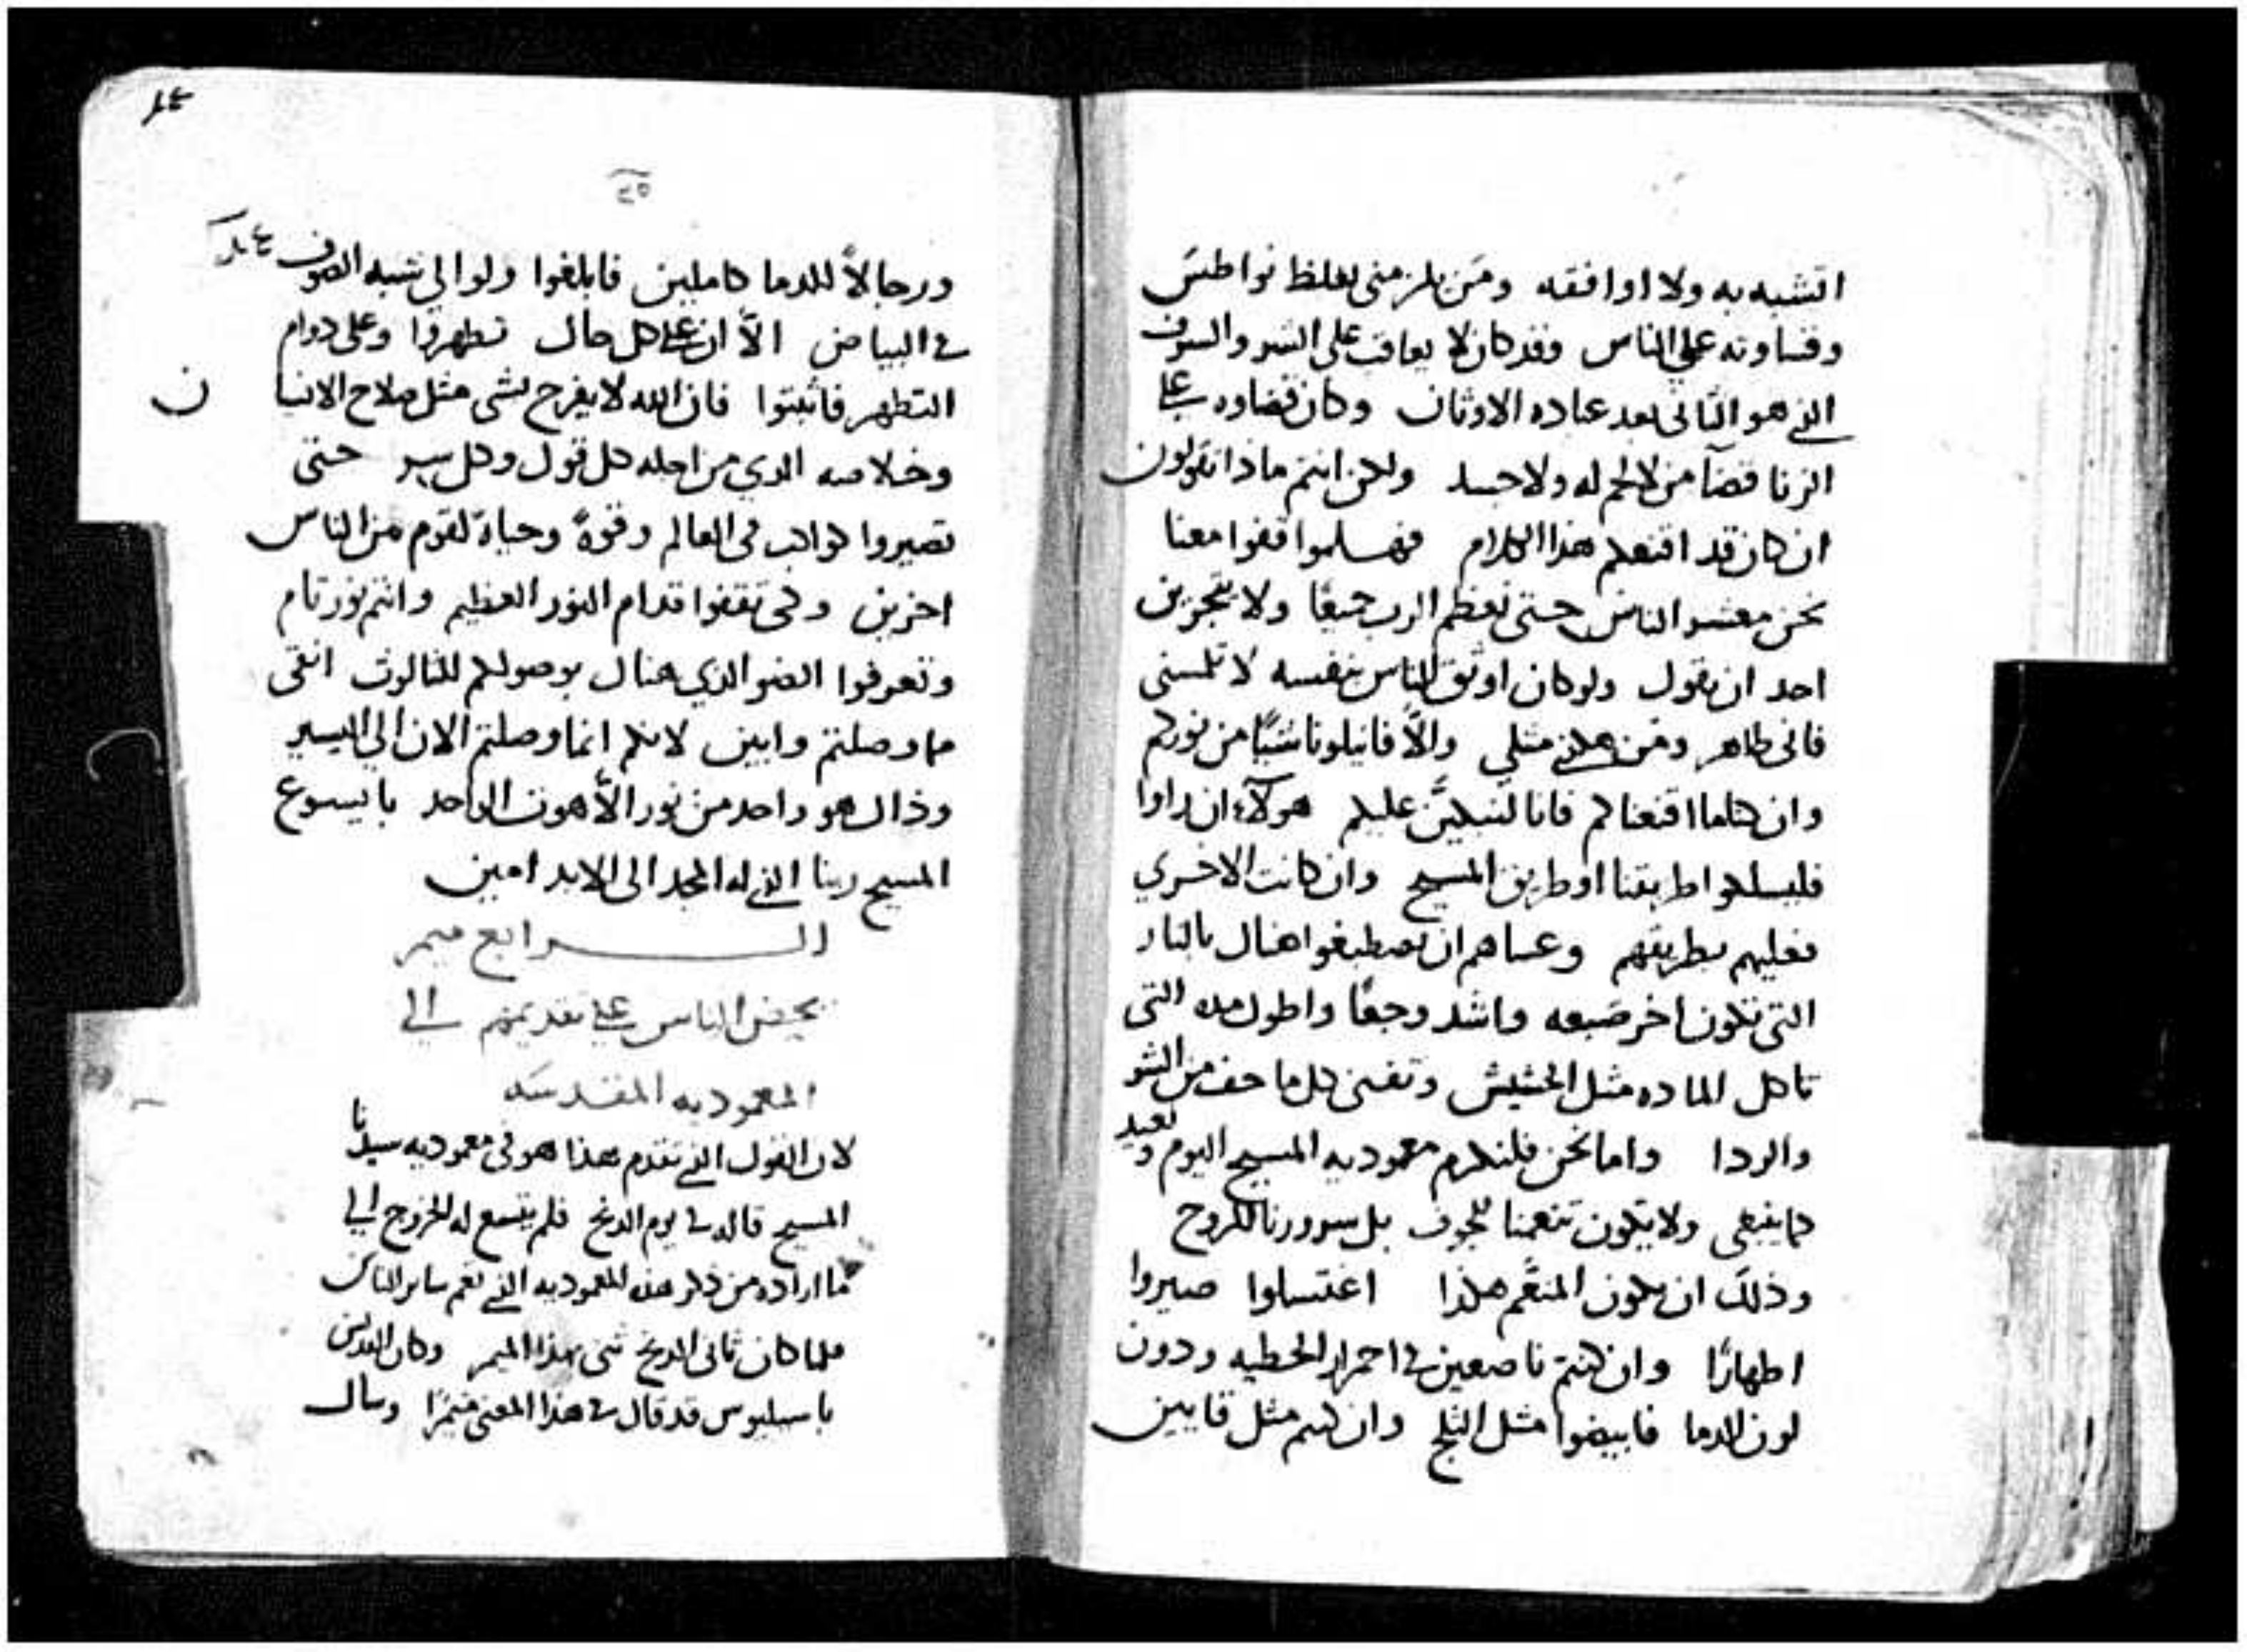 اتشبه به ولا اوافقه ومَن يلزمنى بغلظ نواطس
وقساوته على الناس وقد كان لا يعاقب على الشر والسرف
الذي هو الثانى بعد عباده الاوثان وكان قضاوه على
الزنا قضآ من لا لحم له ولا جسد ولكن انتم ماذا تقولون
ان كان قد اقنعكم هذا الكلام فهلموا قفوا معنا
نحن معشر الناس حتى نعظم الرب جميعًا ولا يتجزين
احد ان يقول ولو كان اوثق الناس بنفسه لا تلمسنى
فانى طاهر ومَن هكذى مثلي والاّ فانيلونا شيًا من نوركم
وان كنا ما اقنعناكم فانا لنبكيَّن عليكم هولآء ان راوا
فليسلكوا طريقنا او طريق المسيح وان كانت الاخري
فعليهم بطريقهم وعساهم ان يصطبغوا هناك بالنار
التى تكون اخر صبغه واشد وجعًا واطول مده التى
تاكل الماده مثل الحشيش وتفنى كل ما خف من الشر
والردا واما نحن فلنكرم معموديه المسيح اليوم ونعيد
كما ينبغى ولا يكون تنعمنا للجوف بل سرورنا للروح
وذلك ان يكون المنعَّم هكذا اغتسلوا صيروا
اطهارًا وان كنتم ناصعين في احمرار الخطيه ودون
لون الدما فابيضوا مثل الثلج وان كنتم مثل قايين
٢٥
ورجالاً للدما كاملين فابلغوا ولو الي شبه الصوف
في البياض الاّ ان على كل حال تطهروا وعلى دوام
التطهر فاثبتوا فان الله لا يفرح بشى مثل صلاح الانسان
ن
وخلاصه الدي من اجله كل قول وكل سر حتى
تصيروا كواكب فى العالم وقوهً وحياة لقوم من الناس
اخرين وكى تقفوا قدام النور العظيم وانتم نور تام
وتعرفوا الضو الذي هناك بوصولكم للثالوث انقى
مما وصلتم وابين لانكم انما وصلتم الان الى اليسير
وذاك هو واحد من نور الاّهوت الواحد بايسوع
المسيح ربنا الذي له المجد الى الابد امين
الرابع ميمر
يحض الناس على تقديمهم الى
المعموديه المقدسه
لان القول الذي تقدم هذا هو فى معموديه سيدنا
المسيح قاله في يوم الدنح فلم يتسع له للخروج الى
ما اراده من ذكر هذه المعموديه التي تعم ساير الناس
فلما كان ثانى الدنح ثنى بهذا الميمر وكان القديس
باسيليوس قد قال في هذا المعنى ميمرًا وسال